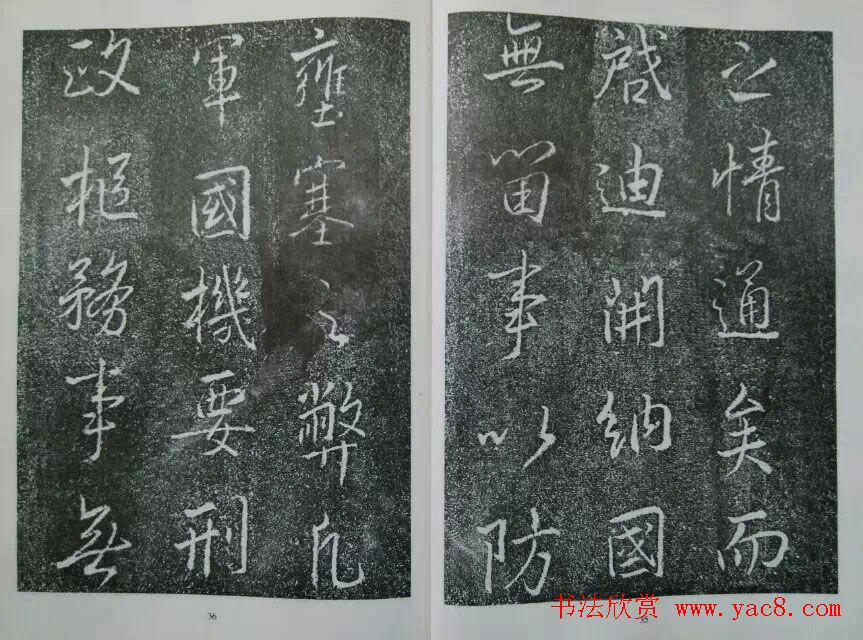 之情通矣而
啟迪開納國
無留事以防
壅塞之弊凡
軍國機要刑
政樞務事無
36
35
书法欣赏 www.yac8.com